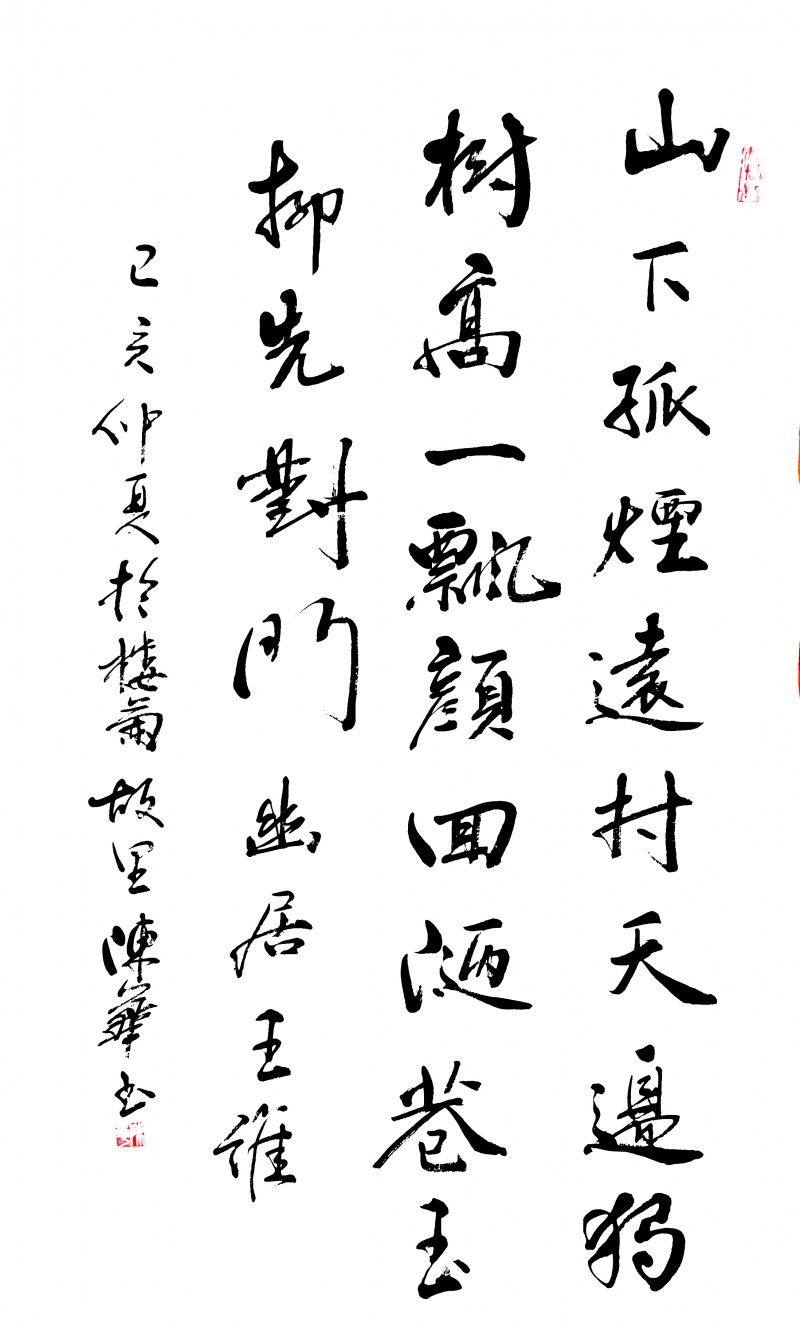 山下孤煙遠村天邊獨
樹高一飄顏回陋巷玉
柳先對門 幽居王維
己亥仲夏於樓蘭故里陳華書